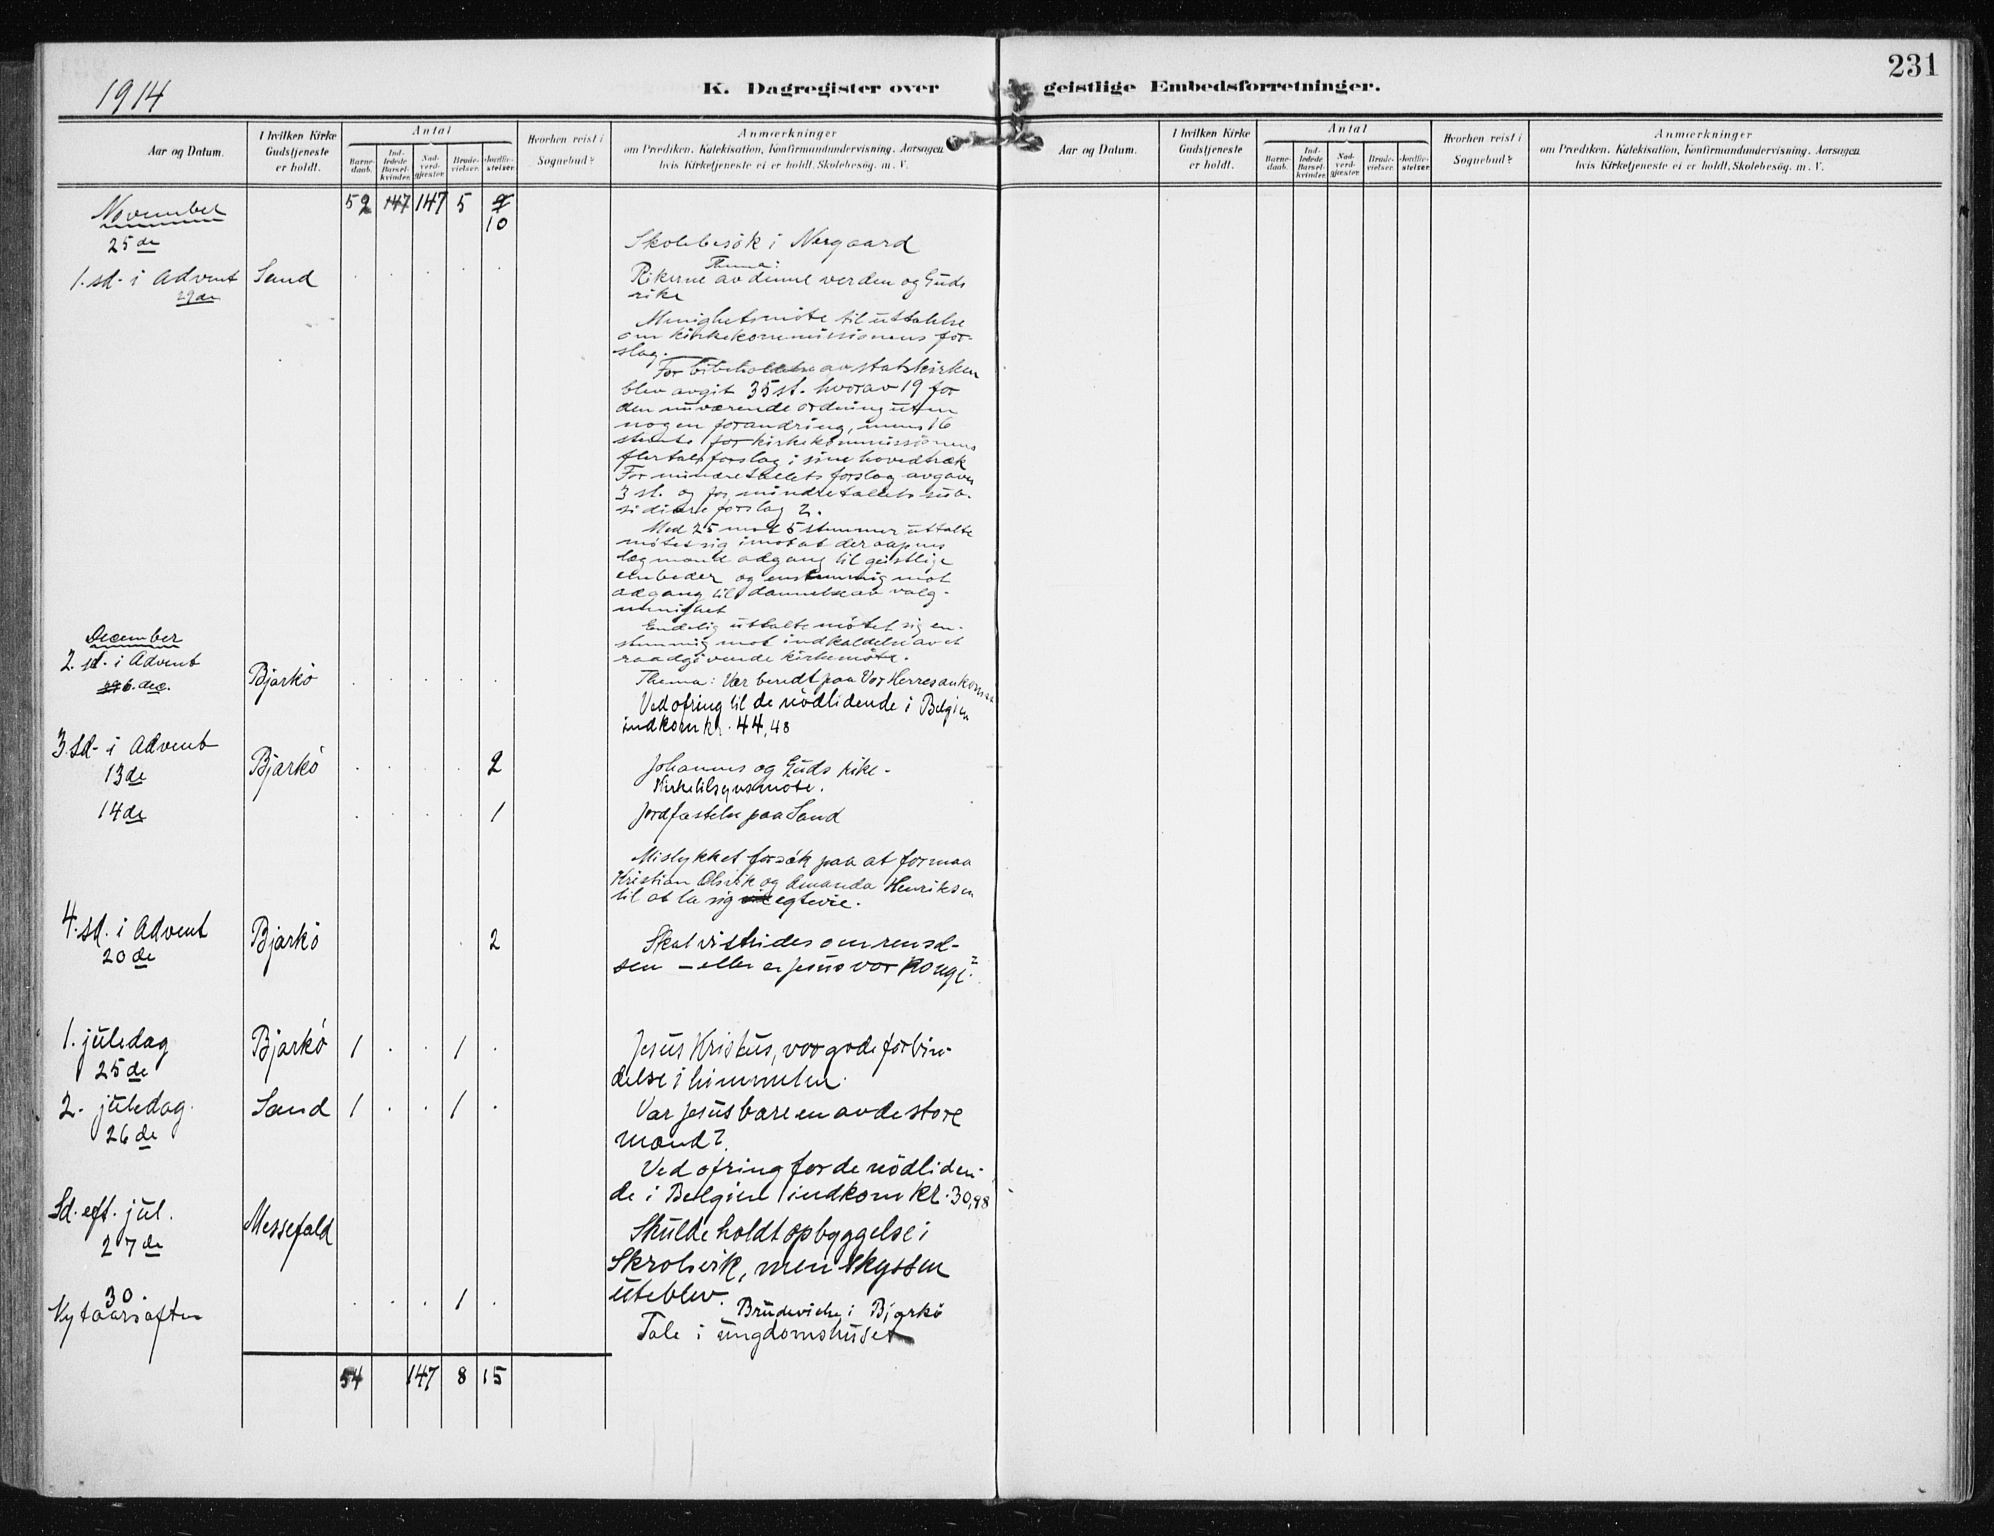 231
1914
K. Dagregister over geistlige Embedsforretninger.
Aar og Datum.
I hvilken Kirke Gudstjeneste er holdt.
Antal
Barnedaab.
Indledede Barselkvinder.
Nadverdgjæster.
Brudevielser.
Jordfæstelser.
Hvorhen reist i Sognebud?
Anmærkninger
om Prædiken, Katekisation, Konfirmandundervisning. Aarsagen
hvis Kirketjeneste ei er holdt. Skolebesög. m. V.
Aar og Datum.
I hvilken Kirke Gudstjeneste er holdt.
Antal
Barnedaab.
Indledede Barselkvinder.
Nadverdgjæster.
Brudevielser.
Jordfæstelser.
Hvorhen reist i Sognebud?
Anmærkninger
om Prædiken, Katekisation, Konfirmandundervisning. Aarsagen
hvis Kirketjeneste ei er holdt. Skolebesög. m. V.
November 52 147 147 5 9
10
25de Skolebesök i Nergaard
Thema:
1. sd. i Advent Sand Rikerne av denne verden og Guds
29de rike
Menighetsmöte til uttalelse
om kirkekommissionens for-
slag.
For bibeholdelse av statskirken
blev avgit 35 st. hvorav 19 for
den nuværende ordning uten
nogen forandring, mens 16
stemte for kirkekommissionens
flertalsforslag i sine hovedtræk
For mindretallets forslag avgaves
3 st. og for mindretallets sub-
sidiære forslag 2.
Med 25 mot 5 stemmer uttalte
møtet sig imot at der aapnes
lægmænd adgang til geistlige
embeder og enstemmig mot
adgang til dannelse av valg-
menighet
Endelig uttalte møtet sig en-
stemmig mot indkaldelse av et
raadgivende kirkemöte.
December
2. sd. i Advent
6. dec. Bjarkö Thema: Vær beredt paa Vor Herres ankomst
Ved ofring til de nödlidende i Belgien
indkom kr. 44,48
3. sd. i Advent
13de Bjarkö 2 Johannes og Guds rike.
Kirketilsynsmöte.
14de 1 Jordfæstelse paa Sand
Mislykket forsök paa at formaa
Kristian Olsvik og Amanda Henriksen
til at la sig egtevie.
4. sd. i Advent Bjarkö 2 Skal vi strides om rensel-
20de sen – eller er Jesus vor konge?
1. juledag Bjarkö 1 1 Jesus Kristus, vor gode forbin-
25de delse i himmelen.
2. juledag Sand 1 1 Var Jesus bare en av de store
26de mænd?
Ved ofring for de nödliden-
de i Belgien indkom kr. 30,98
Sd. eft. jul. Messefald Skulde holdt opbyggelse i
27de Skrolsvik, men skyssen
uteblev.
30. 1 Brudevielse i Bjarkö
Nytaarsaften Tale i ungdomshuset
54 147 8 15